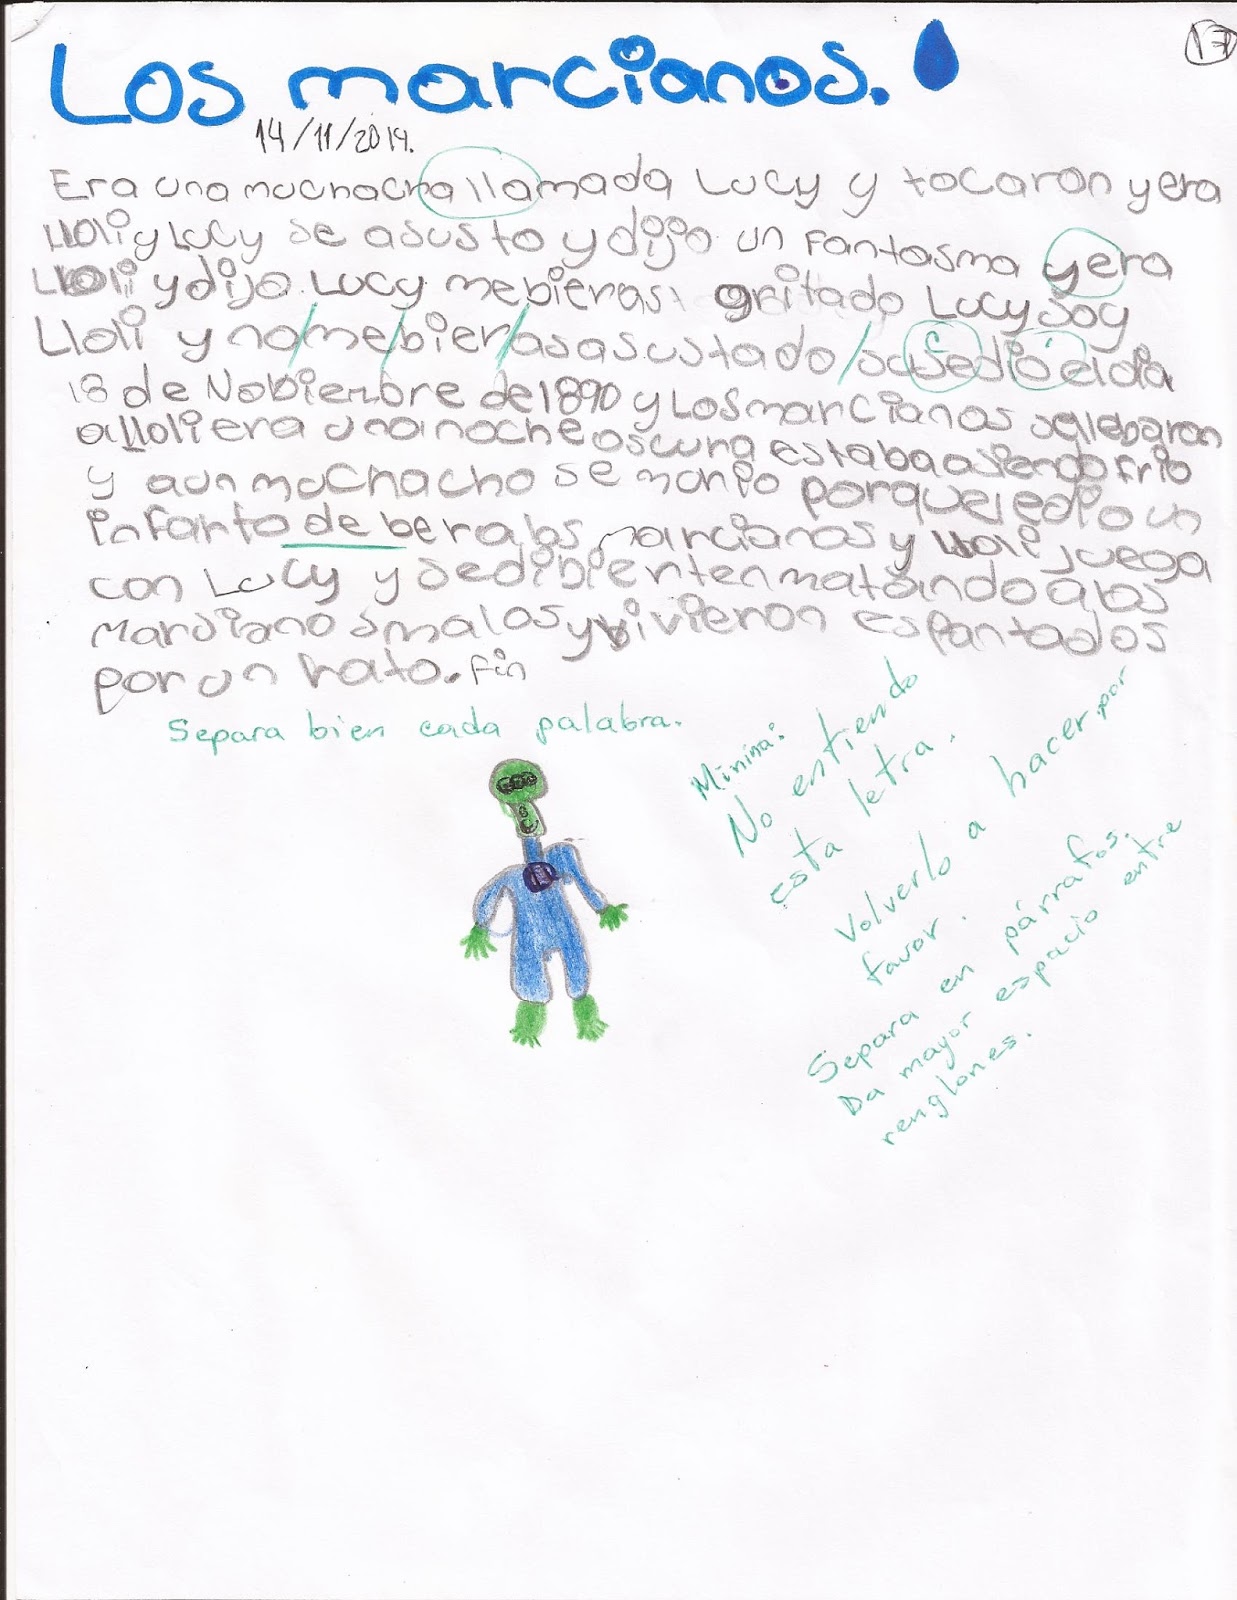 Los marcianos.
17
14/11/2014.
Era una muchacha llamada Lucy y tocaron yera
lloli y Lucy se asusto y dijo un fantasma yera
lloli y dijo Lucy mebieras gritado Lucy soy
Lloli y no/me/bier/asasustado/susedio el dia
18 de Nobienbre de 1890 y Los marcianos selebaron
alloli era una noche oscura estaba asiendo frio
y aun muchacho se morio porque ledio un
infarto de ber a los marcianos y lloli juega
con Lucy y sedibierten matando a los
marsianos malos y vivieron espantados
por un rato. Fin
Separa bien cada palabra.
Minina:
No entiendo
esta letra.
Volverlo a hacer por
favor.
Separa en párrafos.
Da mayor espacio entre
renglones.